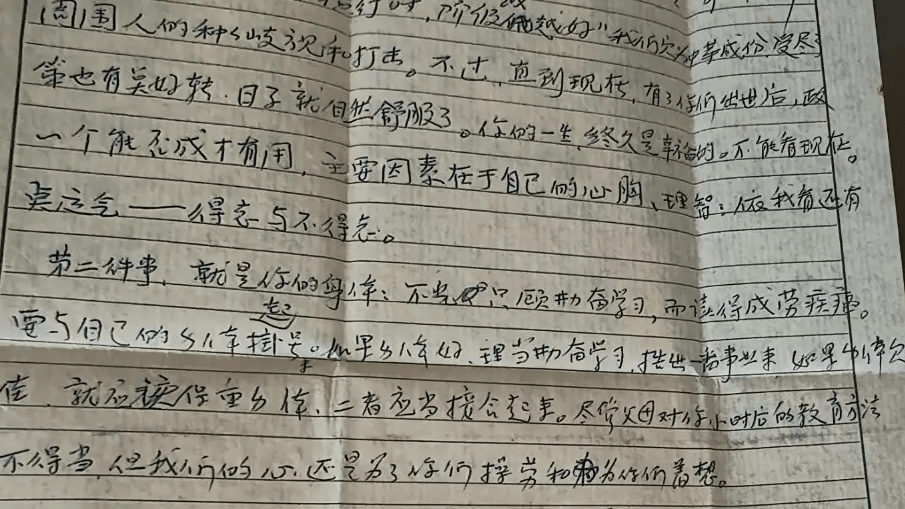 时,阶级越好"我们家
周围人的种种歧视和打击。不过,直到现在,有了你们出世后,政
策也有莫好转,日子就自然舒服了。你的一生,终久是幸福的。不能看现在。
一个能否成才有用,主要因素在于自己的心胸、理智;依我看还有
莫运气——得志与不得志。
第二件事,就是你的身体:不当只顾勤奋学习,而读得成劳疾病。
要与自己的身体挂起号。如果身体好,理当勤奋学习,一番事业来,如果身体欠
佳,就应该保重身体,二者应当接合起来。尽管父母对你小时后的教育方法
不得当,但我们的心,还是为了你们操劳和为你们着想。